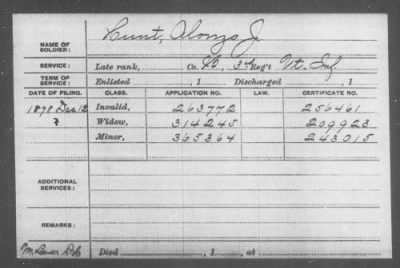 Hunt, Alonzo J
NAME OF SOLDIER:
SERVICE: Late rank, Co. 3rd Reg't Vt. Inf
TERM OF SERVICE: Enlisted , 1 Discharged , 1
DATE OF FILING. CLASS. APPLICATION NO. LAW. CERTIFICATE NO.
1878 Invalid, 263772 256461
Widow, 314245 209923
Minor, 365364 243015
ADDITIONAL SERVICES:
REMARKS:
Died , 1 , at